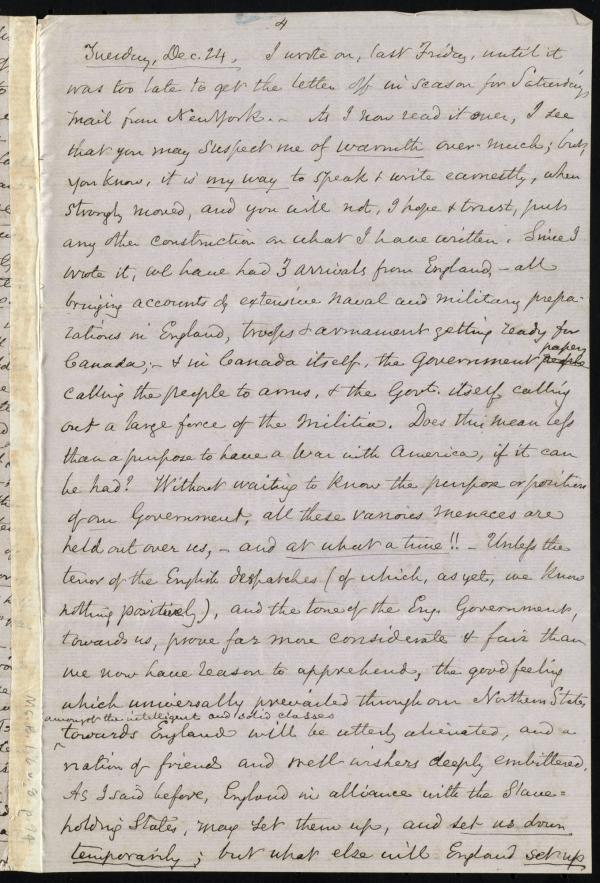 4
Tuesday, Dec. 24. I wrote on, last Friday, until it
was too late to get the letter off in season for Saturday's
mail from New York. – As I now read it over, I see
that you may suspect me of warmth over-much; but,
you know, it is my way to speak & write earnestly, when
strongly moved, and you will not, I hope & trust, put
any other construction on what I have written. Since I
wrote it, we have had 3 arrivals from England, – all
bringing accounts of extensive naval and military prepa-
rations in England, troops & armament getting ready for
Canada; – & in Canada itself, the Government papers people
calling the people to arms, & the Govt. itself calling
out a large force of the militia. Does this mean less
than a purpose to have a War with America, if it can
be had? Without waiting to know the purpose or position
of our Government, all these various menaces are
held out over us, – and at what a time!! – Unless the
tenor of the English despatches (of which, as yet, we know
nothing positively), and the tone of the Eng. Government,
towards us, prove far more considerate & fair than
we now have reason to apprehend, the good feeling
which universally prevailed through our Northern States,
amongst the intelligent and solid classes
towards England will be utterly alienated, and a
nation of friends and well-wishers deeply embittered.
As I said before, England in alliance with the Slave=
holding States, may set them up, and set us down
temporarily; but what else will England set up